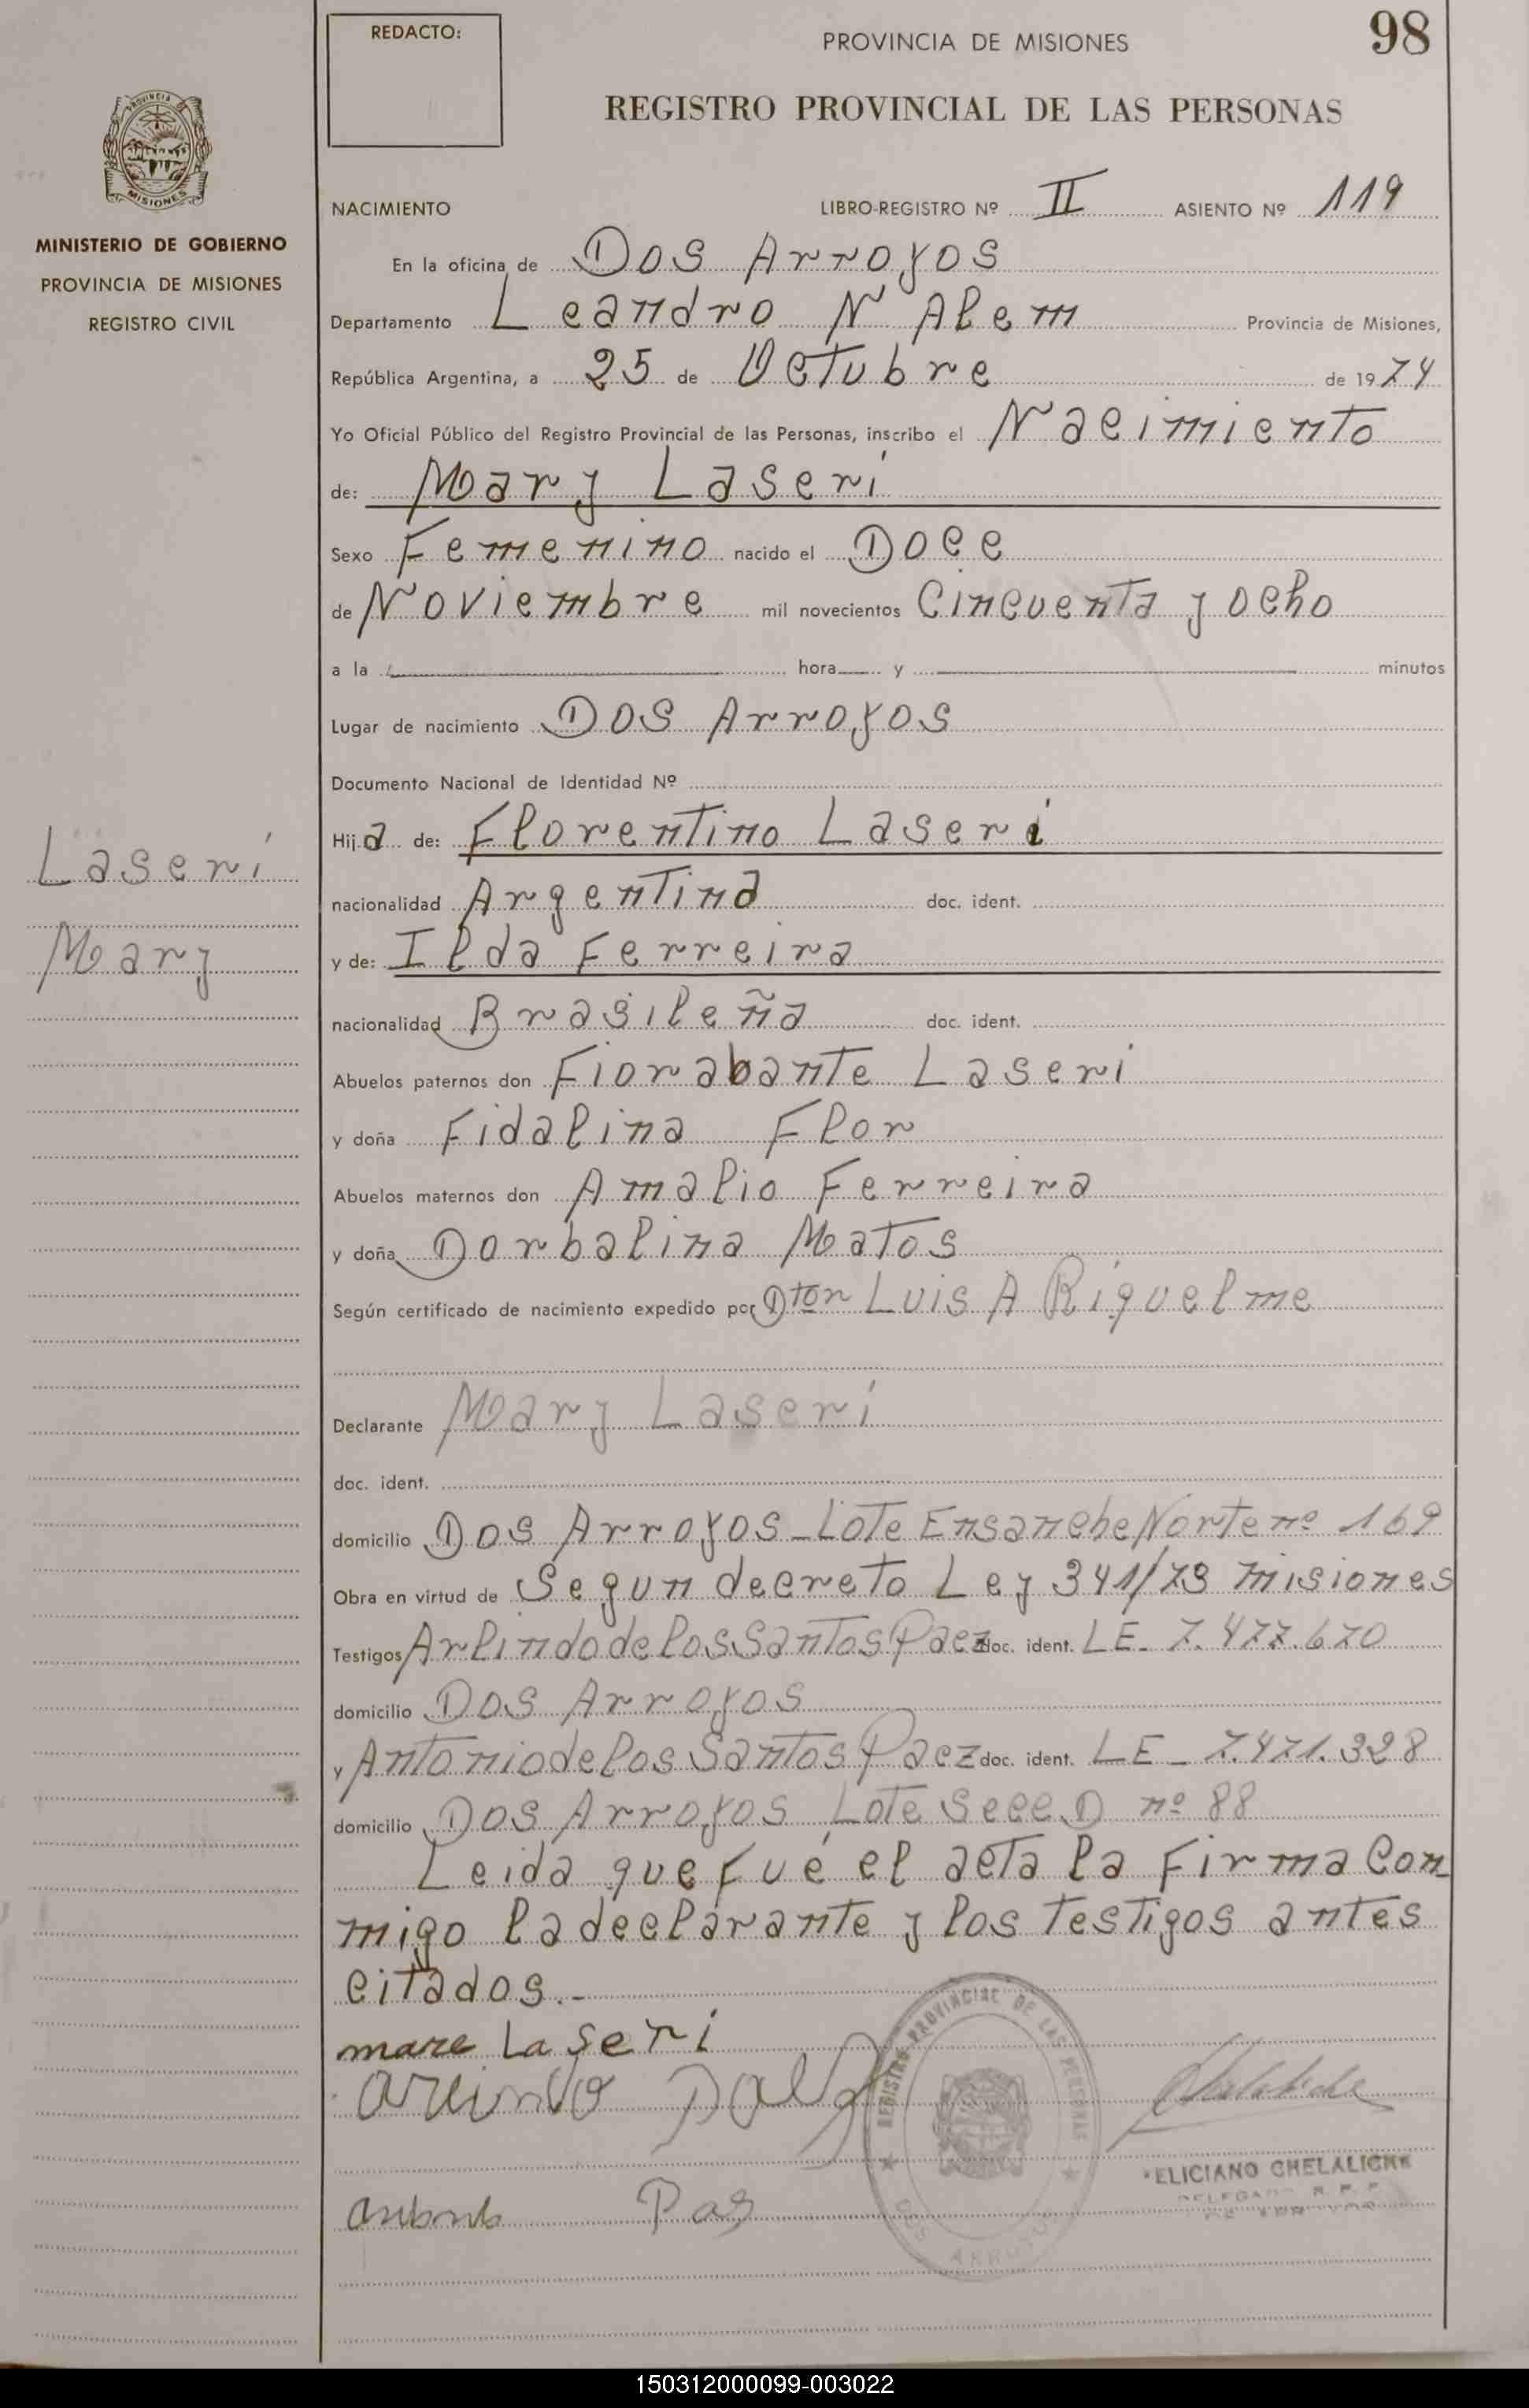 REDACTO:
PROVINCIA DE MISIONES
98
REGISTRO PROVINCIAL DE LAS PERSONAS
PROVINCIA
MISIONES
MINISTERIO DE GOBIERNO
PROVINCIA DE MISIONES
REGISTRO CIVIL
NACIMIENTO LIBRO-REGISTRO Nº II ASIENTO Nº 119
En la oficina de Dos Arroyos
Departamento Leandro N Alem Provincia de Misiones,
República Argentina, a 25 de Octubre de 1974
Yo Oficial Público del Registro Provincial de las Personas, inscribo el Nacimiento
de: Mary Laseri
Sexo Femenino nacido el Doce
de Noviembre mil novecientos Cincuenta y ocho
a la hora y minutos
Lugar de nacimiento Dos Arroyos
Documento Nacional de Identidad Nº
Hija de: Florentino Laseri
Laseri
nacionalidad Argentina doc. ident.
Mary
y de: Ilda Ferreira
nacionalidad Brasileña doc. ident.
Abuelos paternos don Fiorabante Laseri
y doña Fidalina Flor
Abuelos maternos don Amalio Ferreira
y doña Dorbalina Matos
Según certificado de nacimiento expedido por Dtor Luis A Riquelme
Declarante Mary Laseri
doc. ident.
domicilio Dos Arroyos - Lote Ensanche Norte nº 169
Obra en virtud de Segun decreto Ley 341/73 misiones
Testigos Arlindo de los Santos Paez doc. ident. LE - 7.477.670
domicilio Dos Arroyos
y Antonio de los Santos Paez doc. ident. LE - 7.471.328
domicilio Dos Arroyos Lote Secc D nº 88
Leida que fué el acta la firma con
migo la declarante y los testigos antes
citados.-
mare Laseri
REGISTRO PROVINCIAL DE LAS PERSONAS
DOS ARROYOS
ELICIANO CHELALICHE
150312000099-003022